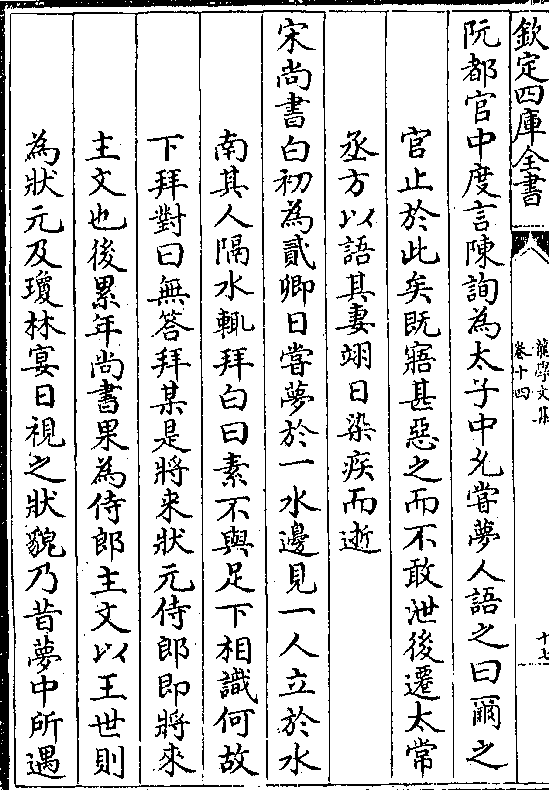 欽定四庫全書
龍學文集
卷十四
十七
阮都官中度言陳詢為太子中允嘗夢人語之曰爾之
官止於此矣既寤甚惡之而不敢泄後遷太常
丞方以語其妻翊日染疾而逝
宋尚書白初為貳卿日嘗夢於一水邊見一人立於水
南其人隔水輒拜白曰素不與足下相識何故
下拜對曰無答拜某是將来狀元侍郎即將來
主文也後累年尚書果為侍郎主文以王世則
為狀元及瓊林宴日視之狀貌乃昔夢中所遇